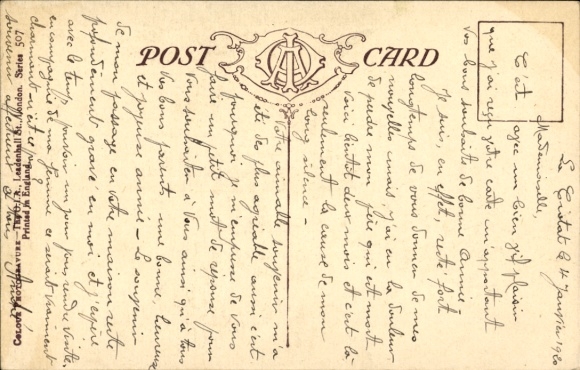 POST CARD
La Ciotat le 4 Janvier 1920
Mademoiselle,
C'est avec un bien gd plaisir
que j'ai reçu votre carte m'apportant
vos bons souhaits de bonne Année
Je suis, en effet, resté fort
longtemps de vous donner de mes
nouvelles mais, j'ai eu la douleur
de perdre mon père qui est mort
voici bientôt deux mois et c'est là
seulement la cause de mon
long silence -
Votre aimable surprise m'a
été des plus agréable aussi c'est
pourquoi je m'empresse de vous
faire un petit mot de réponse pour
Vous souhaiter à Vous ainsi qu'à tous
Vos bons parents une bonne, heureuse
et joyeuse année - Le souvenir
de mon passage en votre maison reste
profondément gravé en moi et j'espère
avec le temps pouvoir un jour vous rendre visite
en compagnie de ma femme ce serait vraiment
charmant n'est-ce pas
souvenir affectueux
COLOUR PHOTOGRAVURE Leadenhall St., London. Series 507
Printed in England.